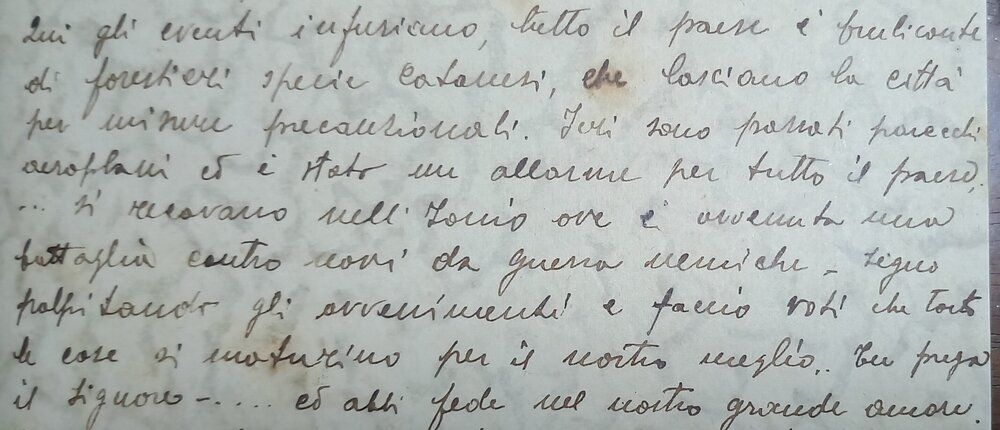 Qui gli eventi infuriano, tutto il paese è brulicante
di forestieri specie Catanesi, che lasciano la città
per misure precauzionali. Ieri sono passati parecchi
aeroplani ed è stato un allarme per tutto il paese,
... si recavano nell'Ionio ove è avvenuta una
battaglia contro navi da guerra nemiche - Seguo
palpitando gli avvenimenti e faccio voti che tosto
le cose si maturino per il nostro meglio.. Tu prega
il Signore -.... ed abbi fede nel nostro grande amore.